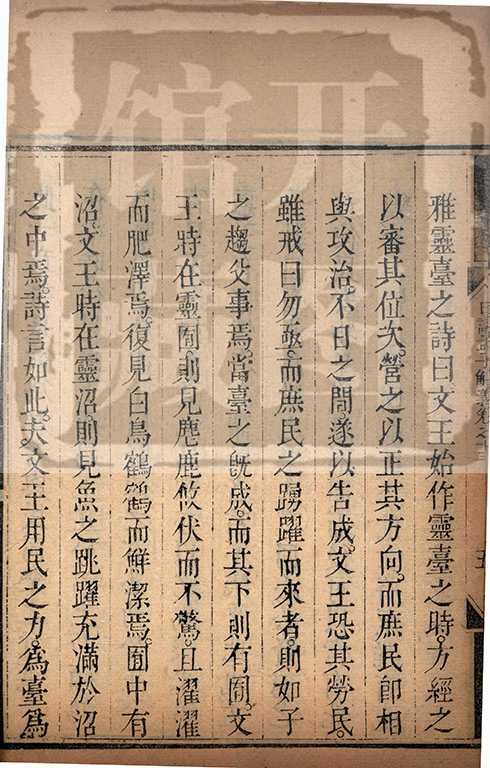 雅靈臺之詩曰文王始作靈臺之時方經之
以審其位次營之以正其方向而庶民卽相
與攻治不日之間遂以告成文王恐其勞民
雖戒曰勿亟而庶民之踴躍而來者則如子
之趨父事焉當臺之旣成而其下則有囿文
王時在靈囿則見麀鹿攸伏而不驚且濯濯
而肥澤焉復見白鳥鶴鶴而鮮潔焉囿中有
沼文王時在靈沼則見魚之跳躍充滿於沼
之中焉詩言如此夫文王用民之力爲臺爲